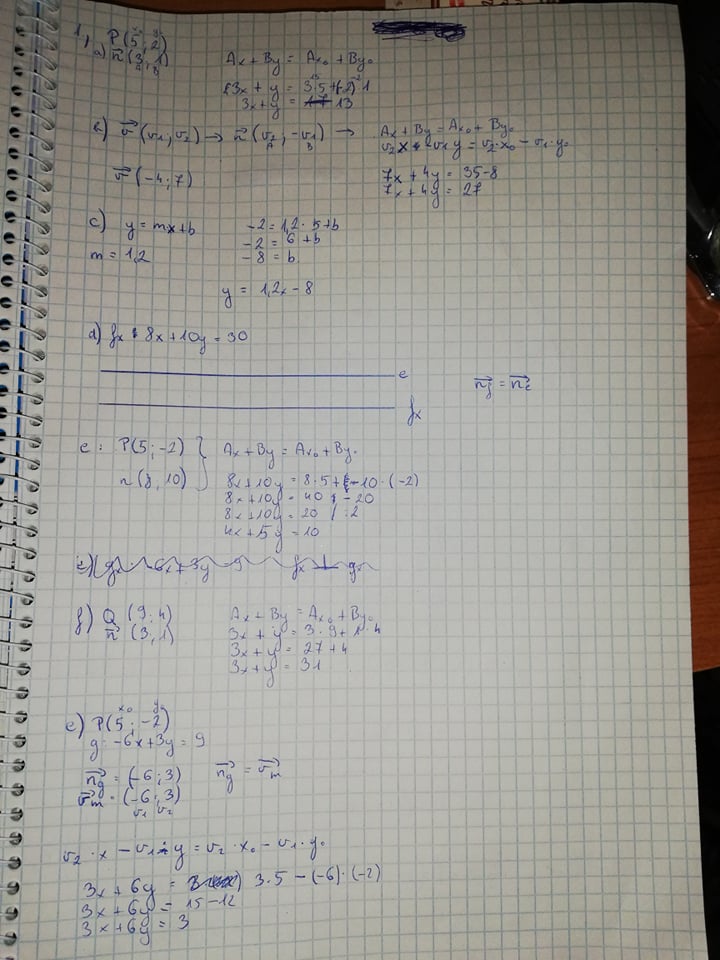 1,
a) P(5;-2)
n(3;1)
A B
Ax + By = Ax₀ + By₀
3x + y = 3·5+(-2)·1
3x+y = 13
b) v(v₁;v₂) → n(v₂;-v₁) →
A B
Ax + By = Ax₀ + By₀
v₂x - v₁y = v₂·x₀ - v₁·y₀
v(-4;7)
7x + 4y = 35-8
7x + 4y = 27
c) y = mx+b
-2 = 1,2·5+b
-2 = 6+b
m = 1,2
-8 = b
y = 1,2x - 8
d) fx: 8x+10y = 30
e
fx
nf = ne
e: P(5;-2)
n(8,10)
Ax + By = Ax₀ + By₀
8x+10y = 8·5+10·(-2)
8x+10y = 40-20
8x+10y = 20 /:2
4x+5y = 10
e) gx -6x+3y = 9 fx ⊥ gx
f) Q (9;4)
n (3,1)
Ax + By = Ax₀ + By₀
3x + y = 3·9+1·4
3x + y = 27+4
3x + y = 31
x₀ y₀
e) P(5;-2)
g: -6x+3y = 9
ng = (-6;3) ng = vm
vm = (-6;3)
v₁ v₂
v₂·x - v₁·y = v₂·x₀ - v₁·y₀
3x + 6y = 3·5 - (-6)·(-2)
3x + 6y = 15-12
3x + 6y = 3